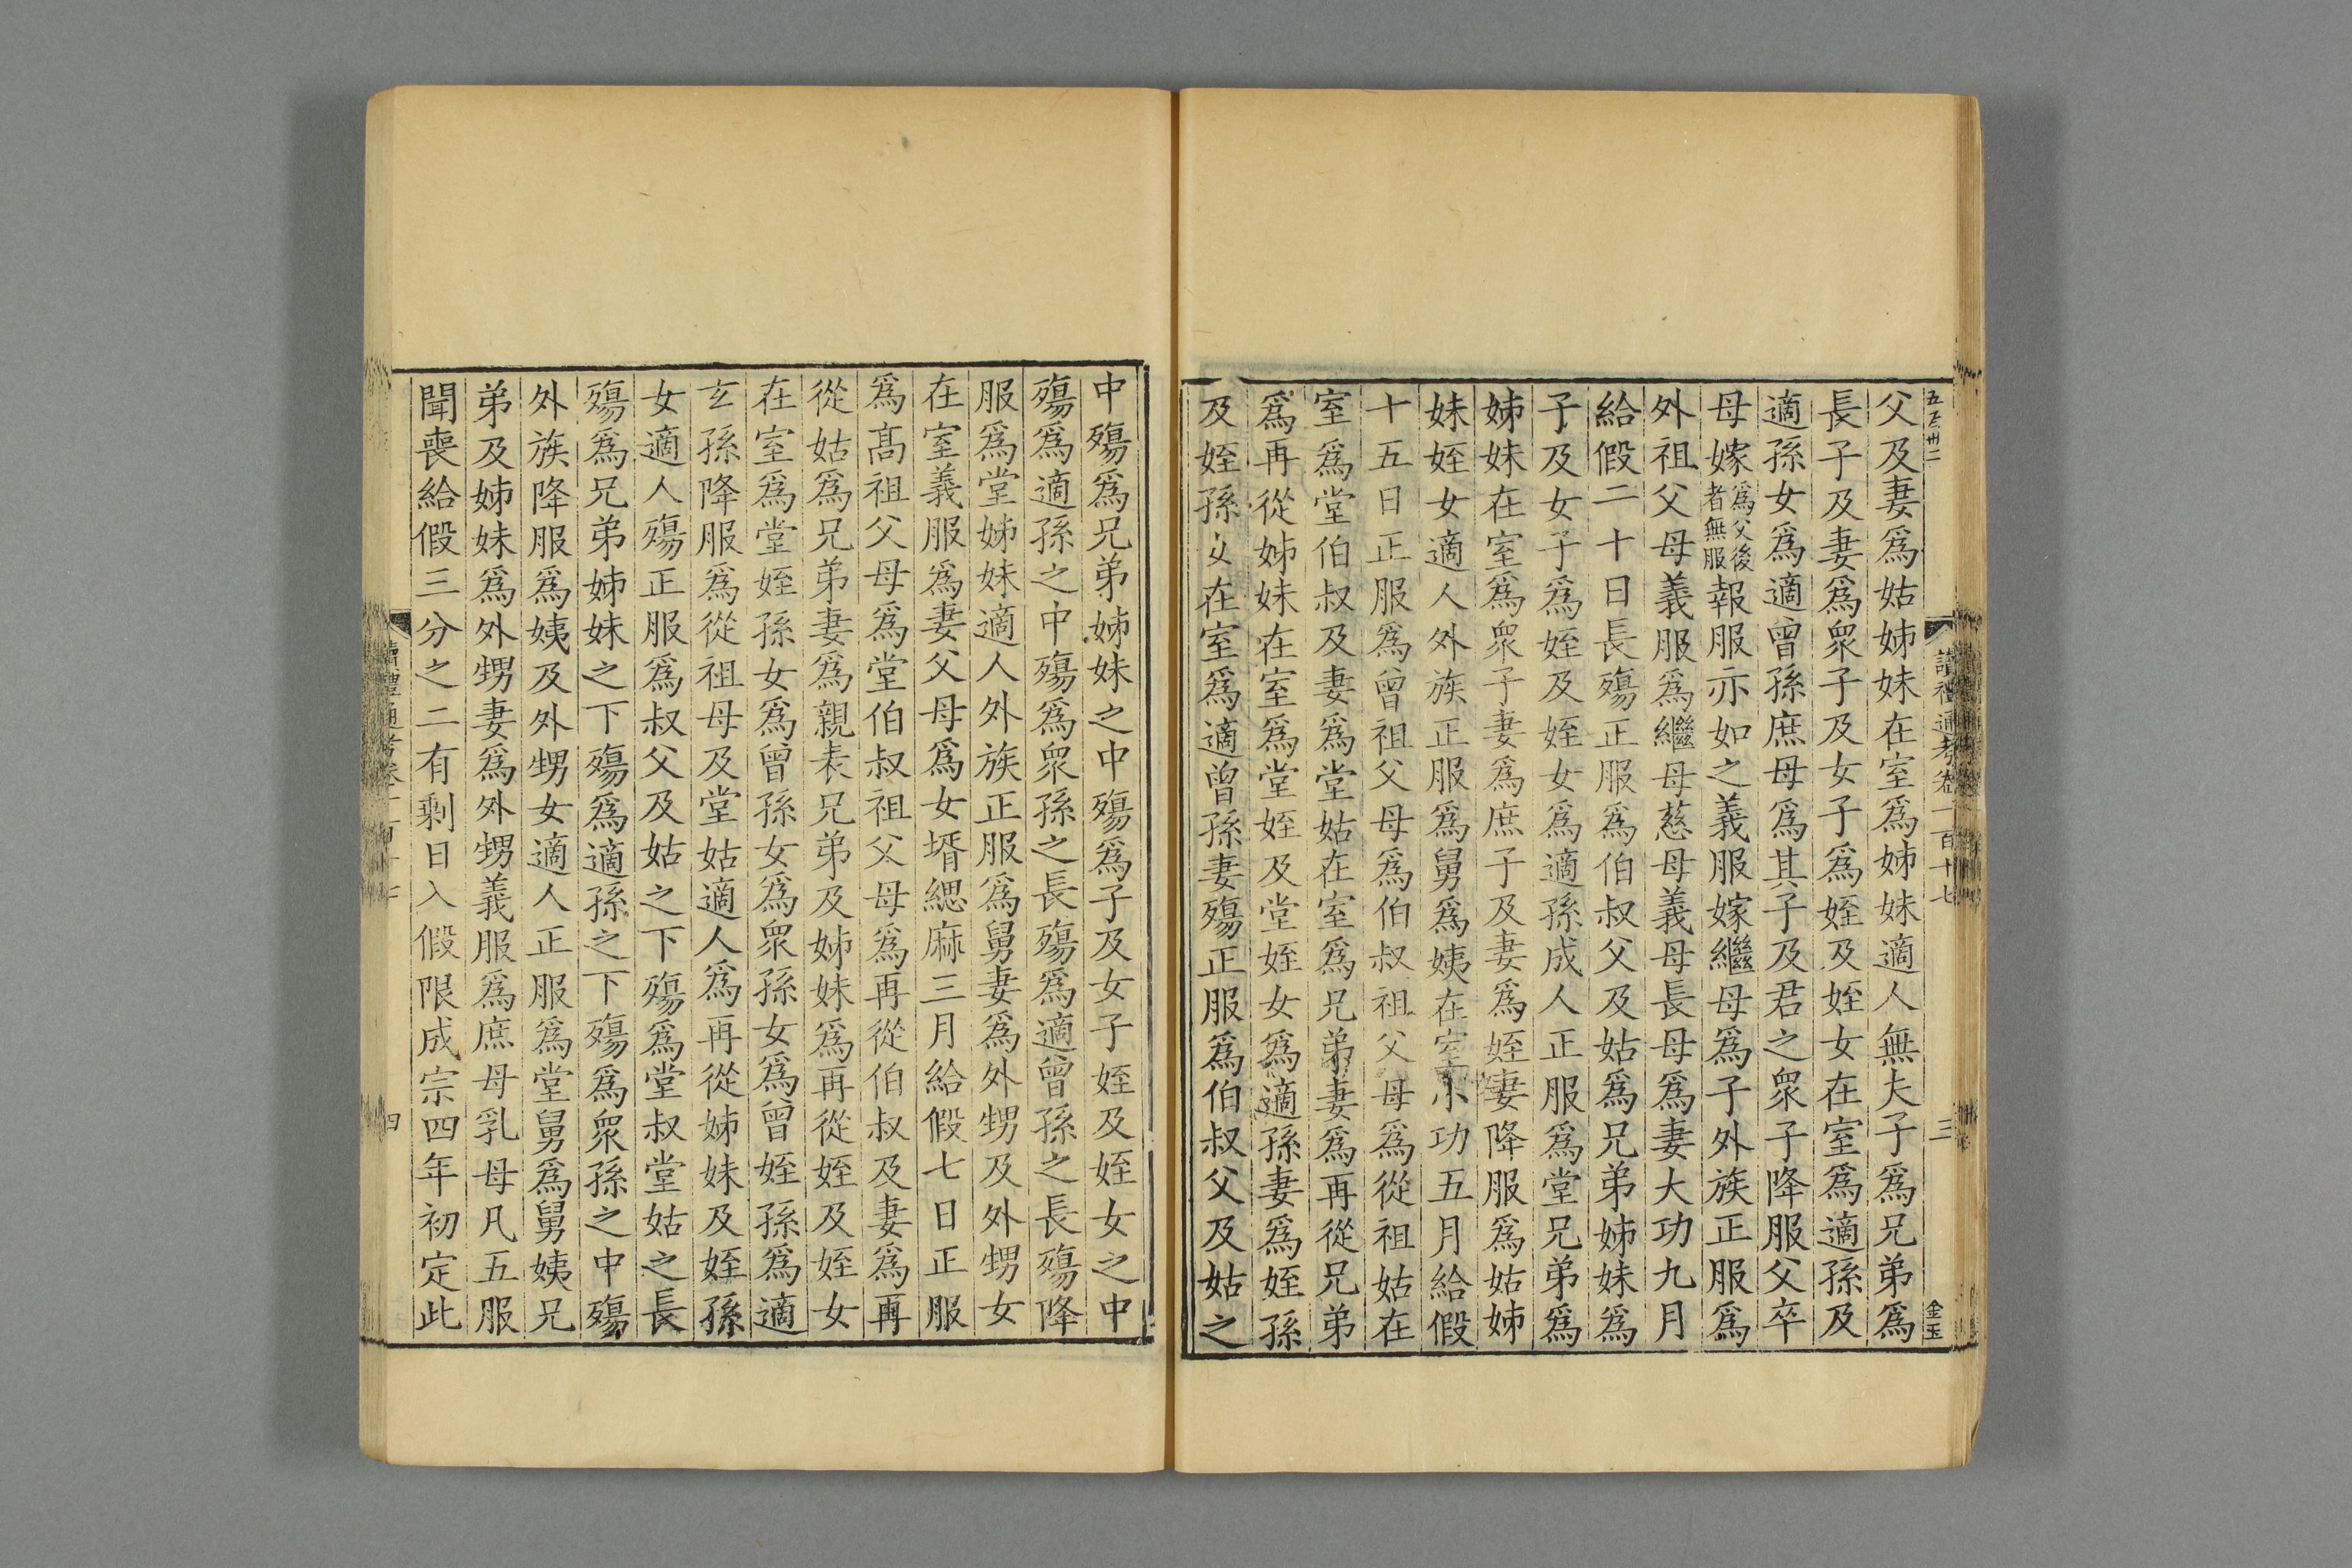 五百卅二
讀禮通考卷一百十七
三
金玉
父及妻爲姑姊妹在室爲姊妹適人無夫子爲兄弟爲
長子及妻爲衆子及女子爲姪及姪女在室爲適孫及
適孫女爲適曾孫庶母爲其子及君之衆子降服父卒
母嫁爲父後者無服報服亦如之義服嫁繼母爲子外族正服爲
外祖父母義服爲繼母慈母義母長母爲妻大功九月
給假二十日長殤正服爲伯叔父及姑爲兄弟姊妹爲
子及女子爲姪及姪女爲適孫成人正服爲堂兄弟爲
姊妹在室爲衆子妻爲庶子及妻爲姪妻降服爲姑姊
妹姪女適人外族正服爲舅爲姨在室小功五月給假
十五日正服爲曾祖父母爲伯叔祖父母爲從祖姑在
室爲堂伯叔及妻爲堂姑在室爲兄弟妻爲再從兄弟
爲再從姊妹在室爲堂姪及堂姪女爲適孫妻爲姪孫
及姪孫女在室爲適曾孫妻殤正服爲伯叔父及姑之
中殤爲兄弟姊妹之中殤爲子及女子姪及姪女之中
殤爲適孫之中殤爲衆孫之長殤爲適曾孫之長殤降
服爲堂姊妹適人外族正服爲舅妻爲外甥及外甥女
在室義服爲妻父母爲女壻緦麻三月給假七日正服
爲高祖父母爲堂伯叔祖父母爲再從伯叔及妻爲再
從姑爲兄弟妻爲親表兄弟及姊妹爲再從姪及姪女
在室爲堂姪孫女爲曾孫女爲衆孫女爲曾姪孫爲適
玄孫降服爲從祖母及堂姑適人爲再從姊妹及姪孫
女適人殤正服爲叔父及姑之下殤爲堂叔堂姑之長
殤爲兄弟姊妹之下殤爲適孫之下殤爲衆孫之中殤
外族降服爲姨及外甥女適人正服爲堂舅爲舅姨兄
弟及姊妹爲外甥妻爲外甥義服爲庶母乳母凡五服
聞喪給假三分之二有剩日入假限成宗四年初定此
讀禮通考卷一百十七
四